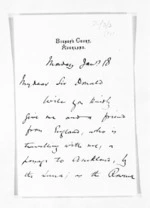 BISHOP'S COURT,
AUCKLAND.
Monday Jan. 18
My dear Sir Donald
Will you kindly
give me and a friend
from England, who is
travelling with me, a
passage to Auckland, by
the Luna: as the Rowena